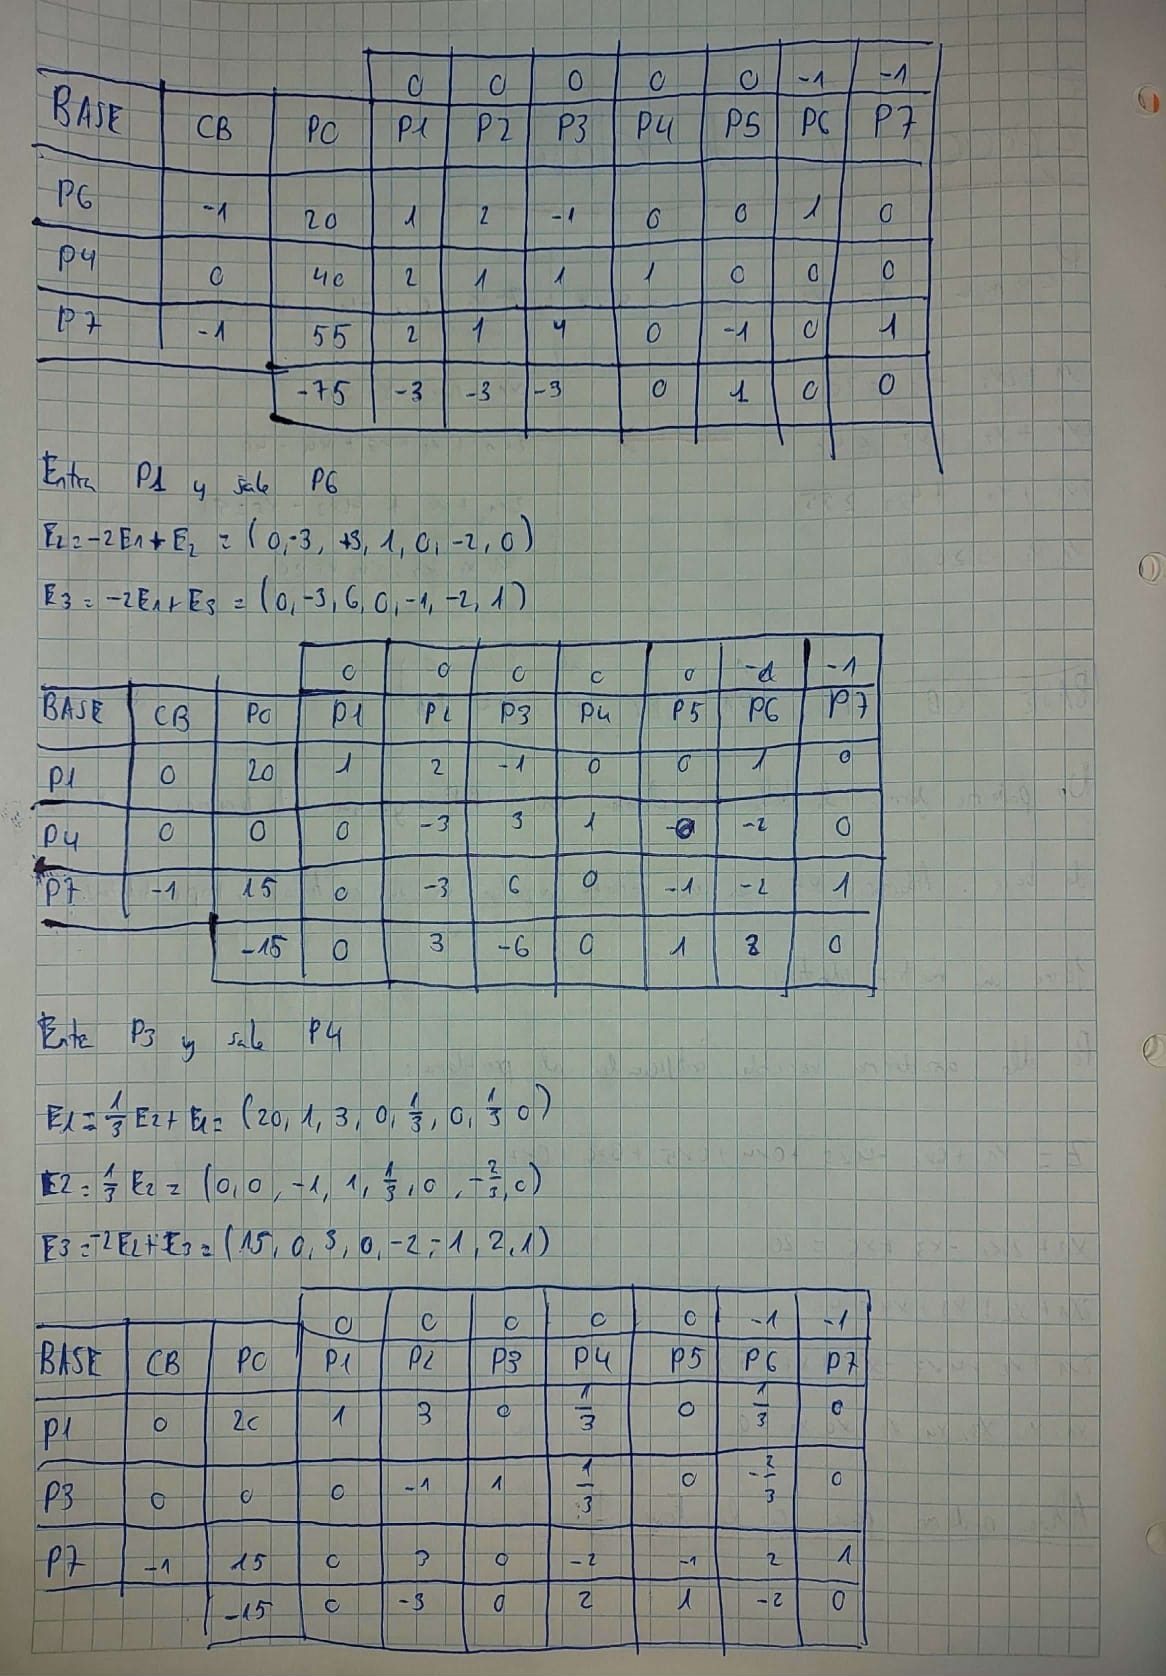 0 0 0 0 0 -1 -1
BASE CB P0 P1 P2 P3 P4 P5 P6 P7
P6 -1 20 1 2 -1 0 0 1 0
P4 0 40 2 1 1 1 0 0 0
P7 -1 55 2 1 4 0 -1 0 1
-75 -3 -3 -3 0 1 0 0
Entra P1 y sale P6
E2=-2E1+E2 = (0,-3, +3, 1, 0, -2, 0)
E3 = -2E1+E3 = (0, -3, 6, 0, -1, -2, 1)
0 0 0 0 0 -1 -1
BASE CB P0 P1 P2 P3 P4 P5 P6 P7
P1 0 20 1 2 -1 0 0 1 0
P4 0 0 0 -3 3 1 -0 -2 0
P7 -1 15 0 -3 6 0 -1 -2 1
-15 0 3 -6 0 1 3 0
Entra P3 y sale P4
E1 = 1/3 E2 + E1 = (20, 1, 3, 0, 1/3, 0, 1/3 0)
E2 = 1/3 E2 = (0, 0, -1, 1, 1/3, 0, -2/3, 0)
E3 = -2E2+E3 = (15, 0, 3, 0, -2, -1, 2, 1)
0 0 0 0 0 -1 -1
BASE CB P0 P1 P2 P3 P4 P5 P6 P7
P1 0 20 1 3 0 1/3 0 1/3 0
P3 0 0 0 -1 1 1/3 0 -2/3 0
P7 -1 15 0 3 0 -2 -1 2 1
-15 0 -3 0 2 1 -2 0